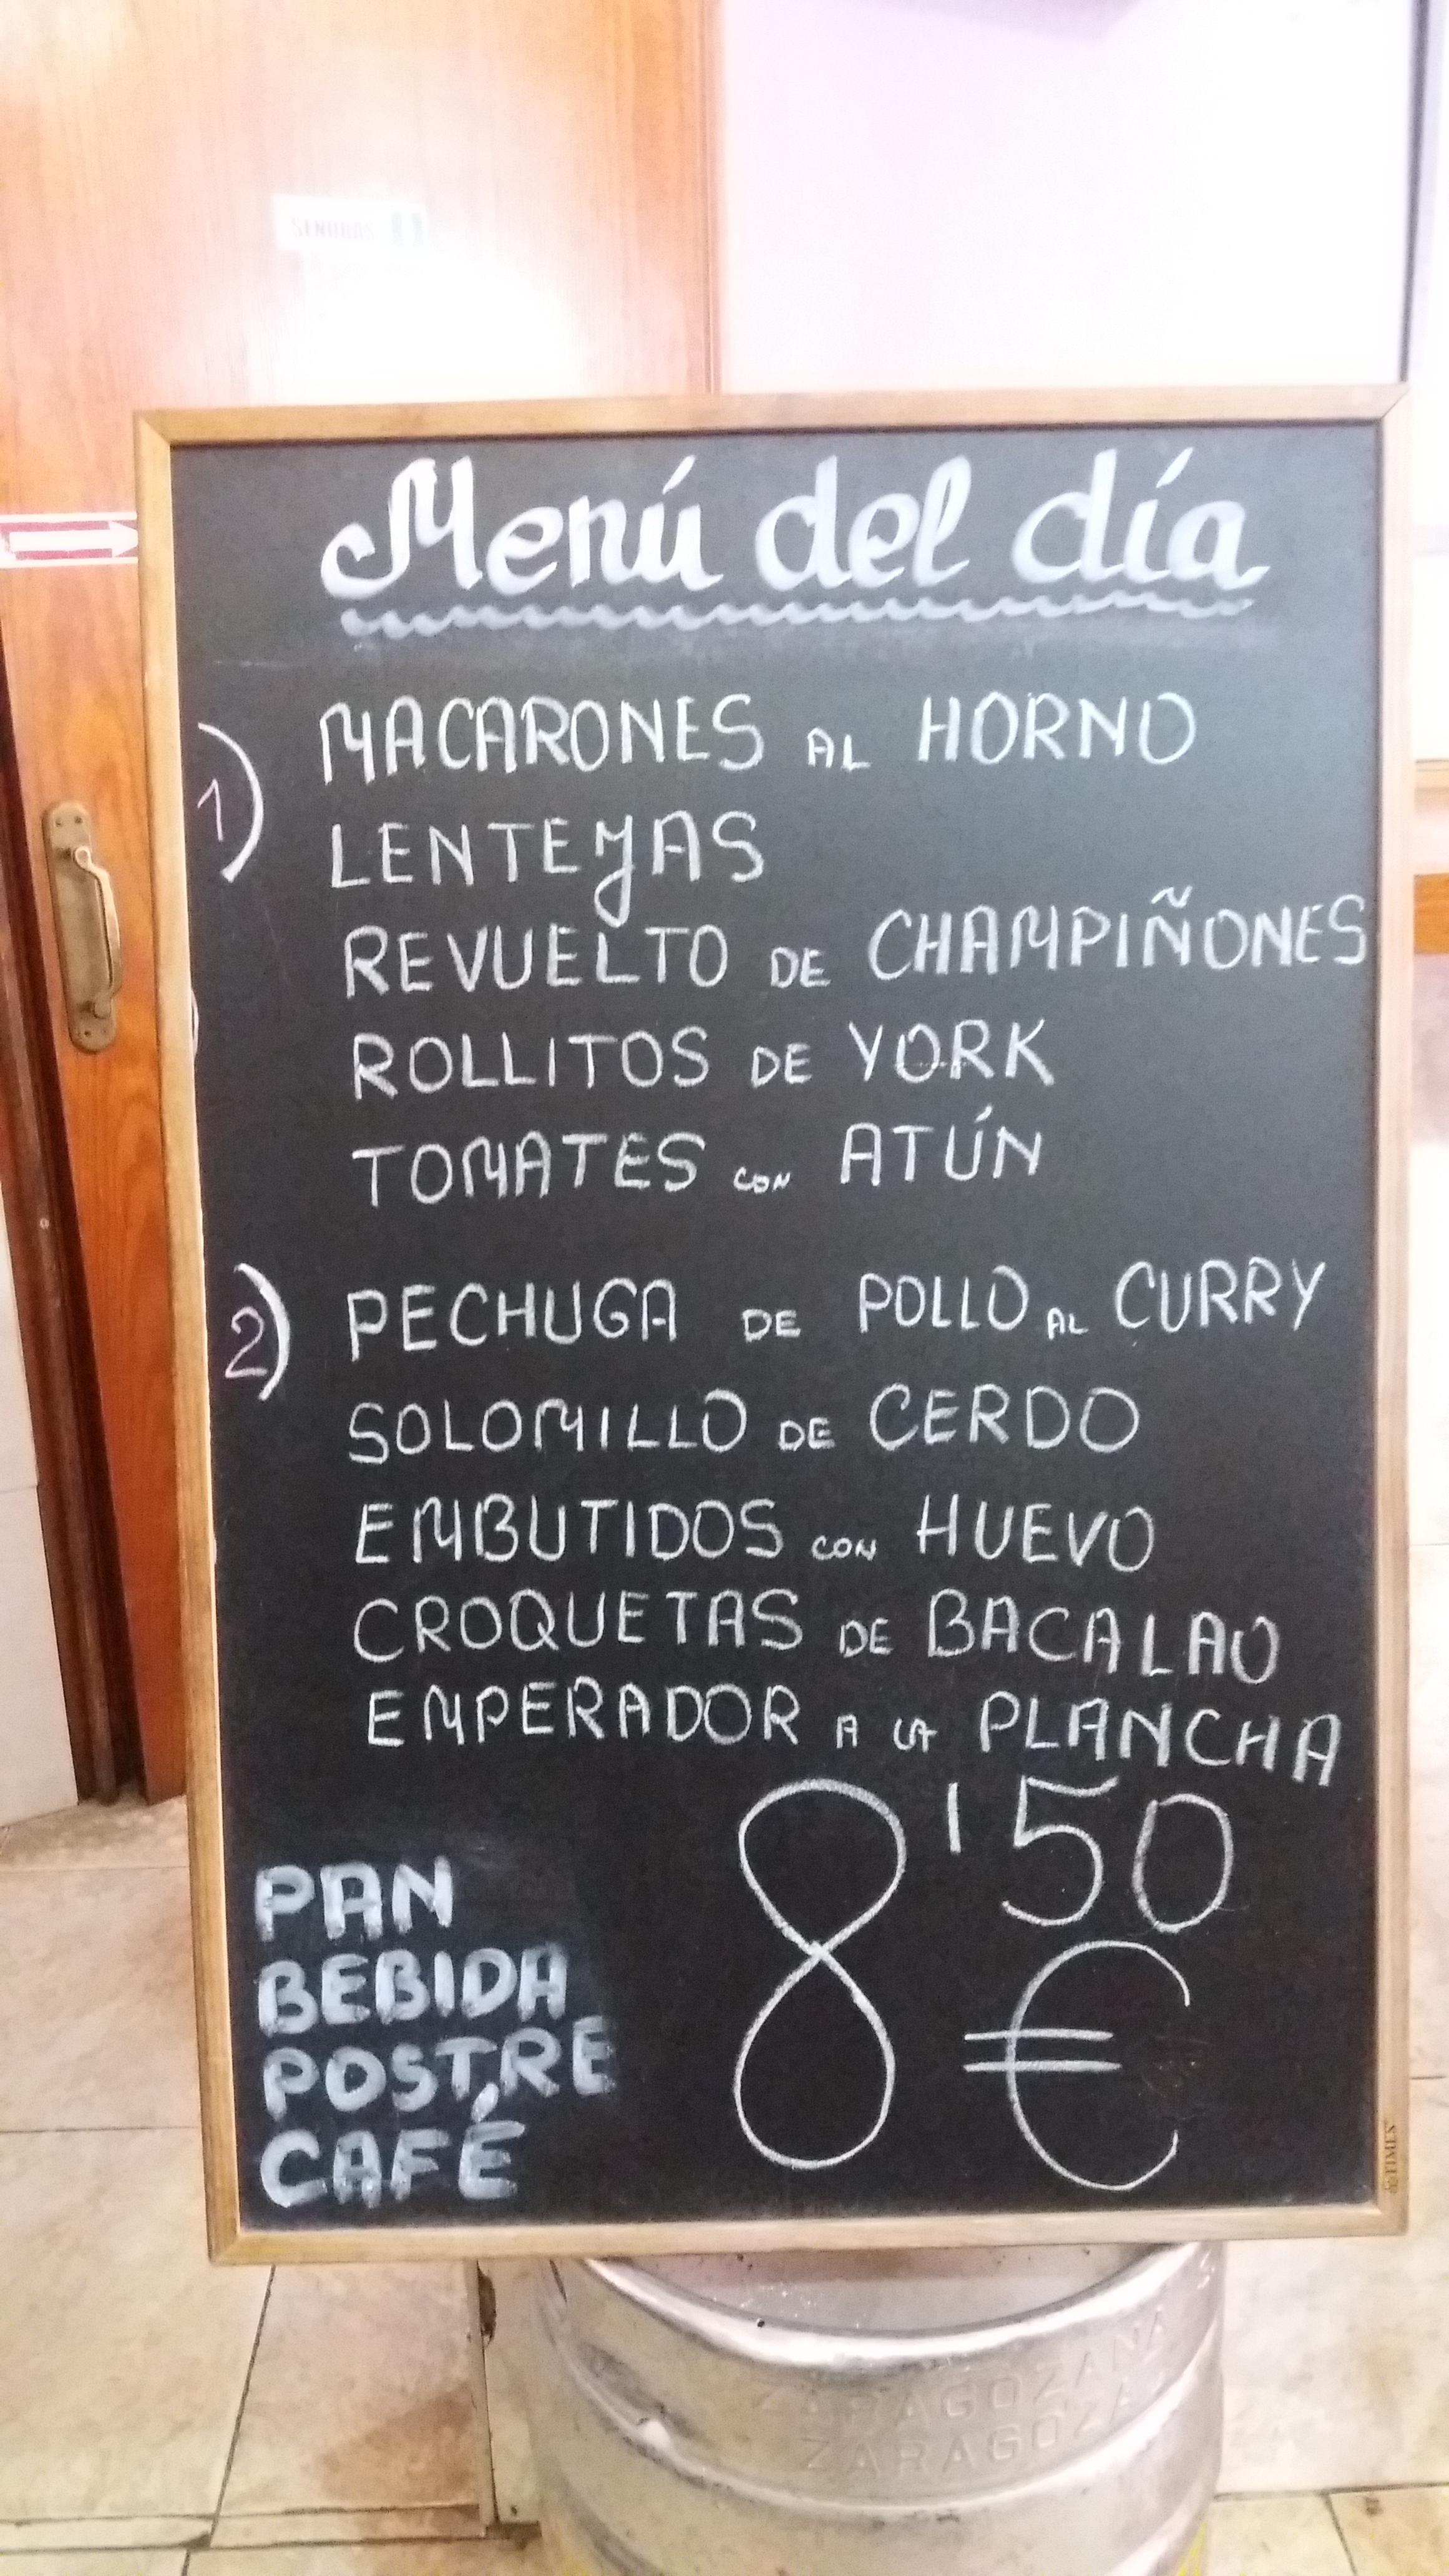 SEÑORAS
Menú del día
1) MACARONES AL HORNO
LENTEJAS
REVUELTO DE CHAMPIÑONES
ROLLITOS DE YORK
TOMATES CON ATÚN
2) PECHUGA DE POLLO AL CURRY
SOLOMILLO DE CERDO
EMBUTIDOS CON HUEVO
CROQUETAS DE BACALAO
EMPERADOR A LA PLANCHA
8'50
€
PAN
BEBIDA
POSTRE
CAFÉ
ZARAGOZANA
ZARAGOZA